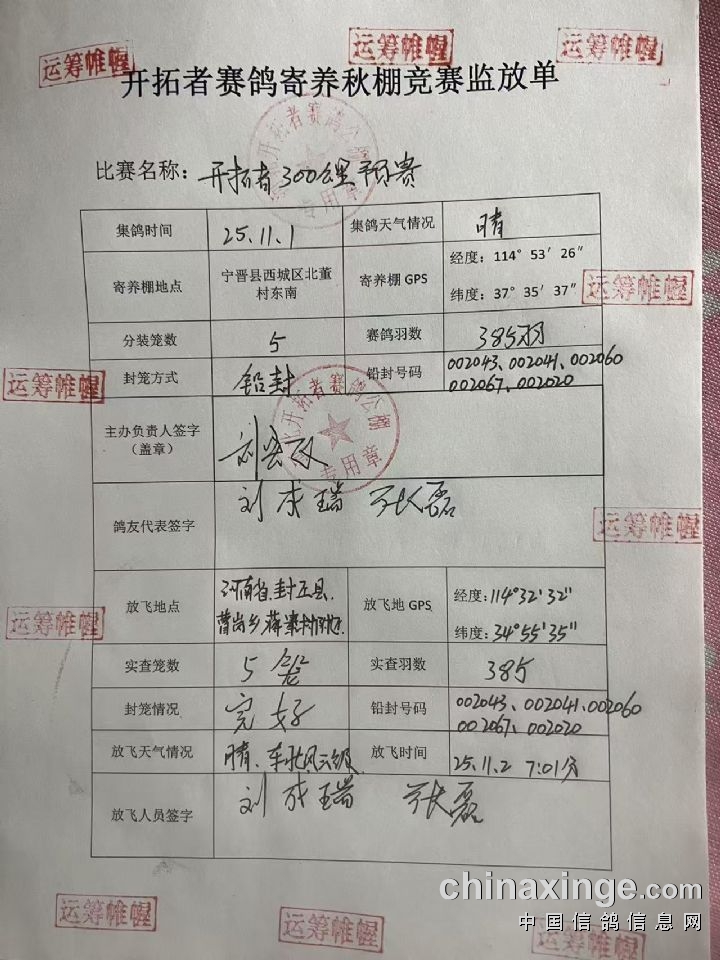 运筹帷幄
运筹帷幄
运筹帷幄
开拓者赛鸽寄养秋棚竞赛监放单
开拓者赛鸽公棚
专用章
比赛名称：开拓者300公里预赛
集鸽时间 25.11.1 集鸽天气情况 晴
寄养棚地点 宁晋县西城区北董村东南 寄养棚 GPS 经度：114° 53′ 26″
纬度：37° 35′ 37″
运筹帷幄
分装笼数 5 赛鸽羽数 385羽
封笼方式 铅封 铅封号码 002043、002041、002060
002067、002020
运筹帷幄
主办负责人签字
（盖章）
开拓者赛鸽公棚
专用章
鸽友代表签字 刘成瑞 张磊
运筹帷幄
放飞地点 河南省封丘县 放飞地 GPS 经度：114°32′32″
曹岗乡 纬度：34°55′35″
运筹帷幄
实查笼数 5笼 实查羽数 385
封笼情况 完好 铅封号码 002043、002041、002060
002067、002020
放飞天气情况 晴、东北风二级 放飞时间 25.11.2 7:01分
放飞人员签字 刘成瑞 张磊
chinaxinge.com
中国信鸽信息网
运筹帷幄
运筹帷幄
运筹帷幄